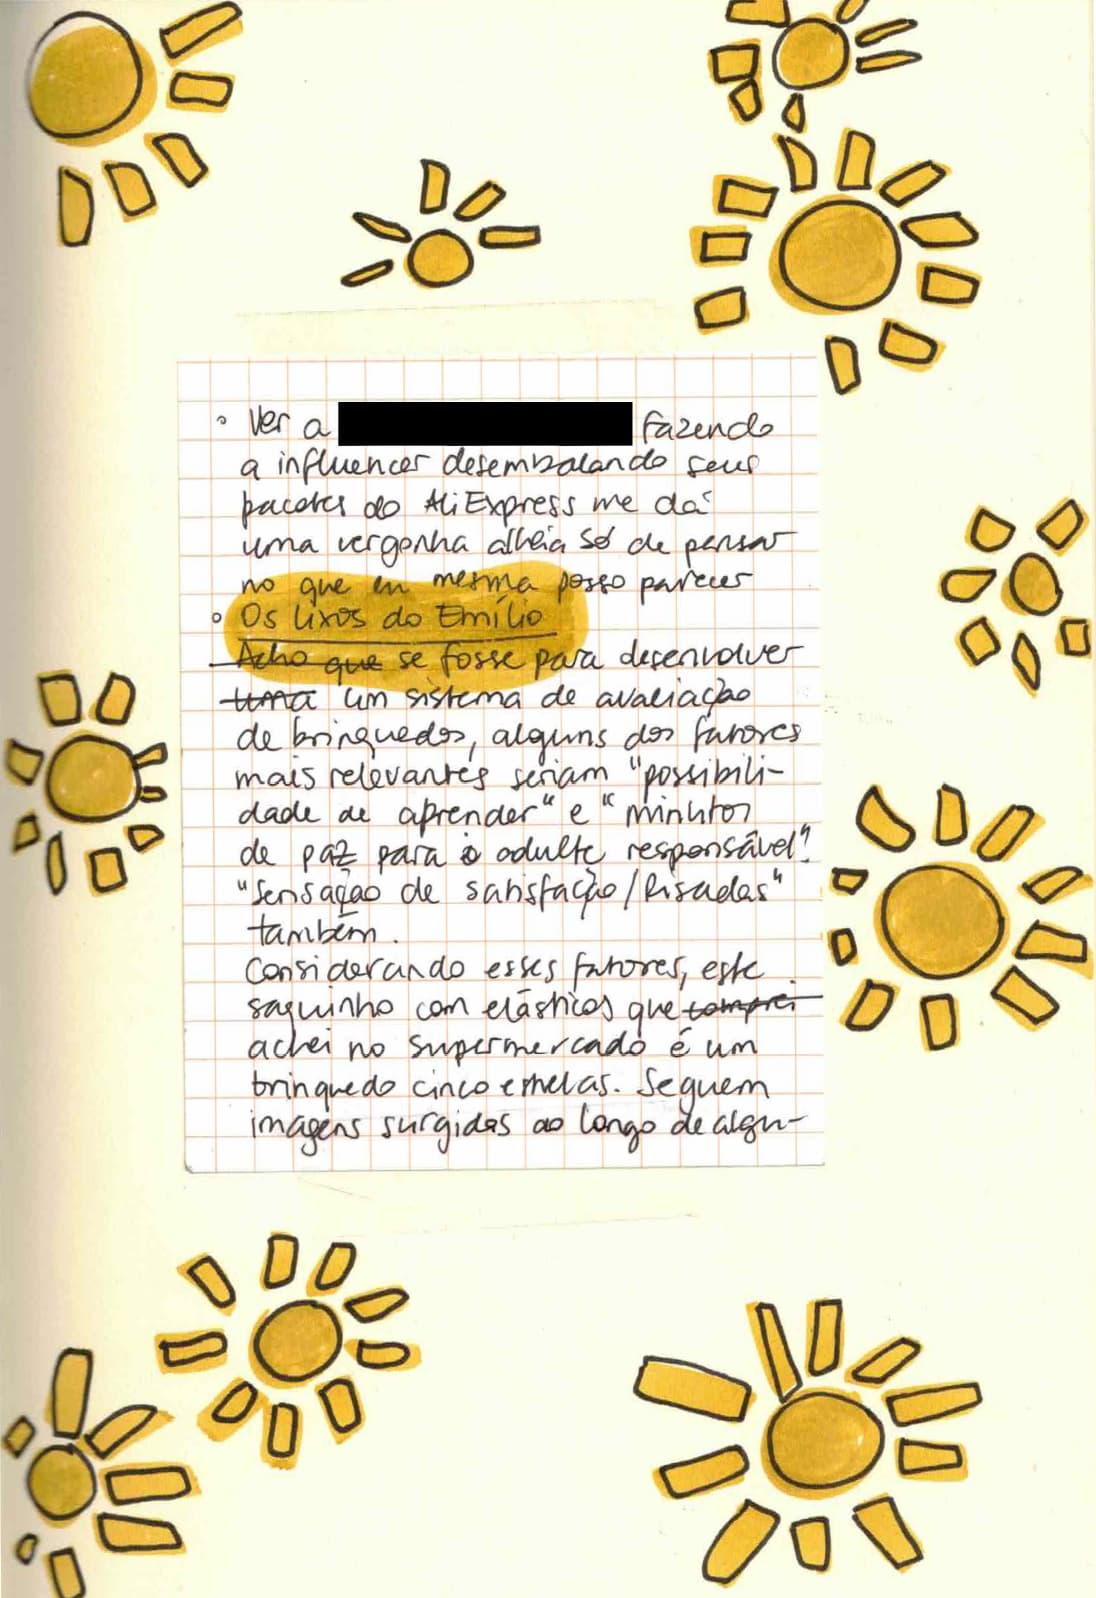 ° Ver a fazendo
a influencer desembalando seus
pacotes do AliExpress me dá
uma vergonha alheia só de pensar
no que eu mesma posso parecer
° Os lixos do Emílio
Acho que se fosse para desenvolver
uma um sistema de avaliação
de brinquedos, alguns dos fatores
mais relevantes seriam "possibili-
dade de aprender" e "minutos
de paz para o adulte responsável".
"Sensação de satisfação/Risadas"
também.
Considerando esses fatores, este
saquinho com elásticos que comprei
achei no supermercado é um
brinquedo cinco estrelas. Seguem
imagens surgidas ao longo de algu-